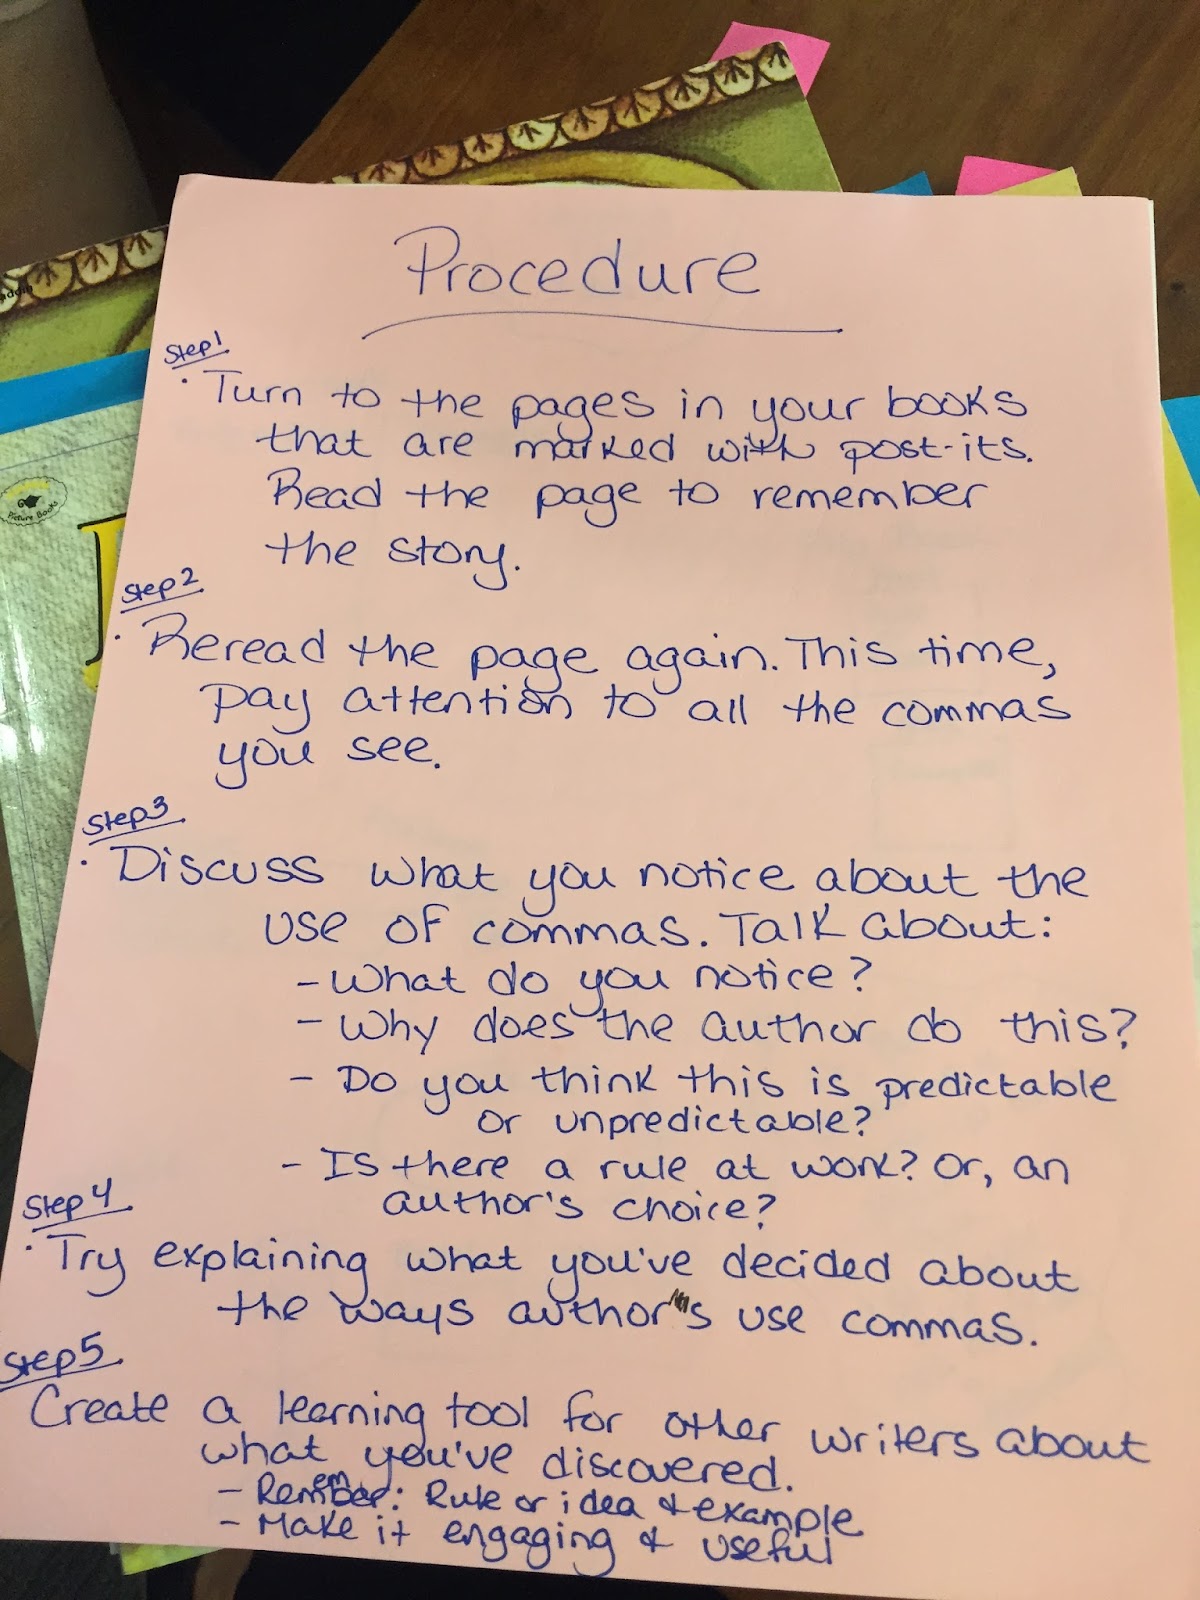 Procedure
Step 1
· Turn to the pages in your books
that are marked with post-its.
Read the page to remember
the story.
Step 2
· Reread the page again. This time,
pay attention to all the commas
you see.
Step 3
· Discuss what you notice about the
use of commas. Talk about:
- What do you notice?
- Why does the author do this?
- Do you think this is predictable
or unpredictable?
- Is there a rule at work? Or, an
author's choice?
Step 4
· Try explaining what you've decided about
the ways authors use commas.
Step 5
Create a learning tool for other writers about
what you've discovered.
- Remember: Rule or idea & example
- Make it engaging & useful
Picture Books